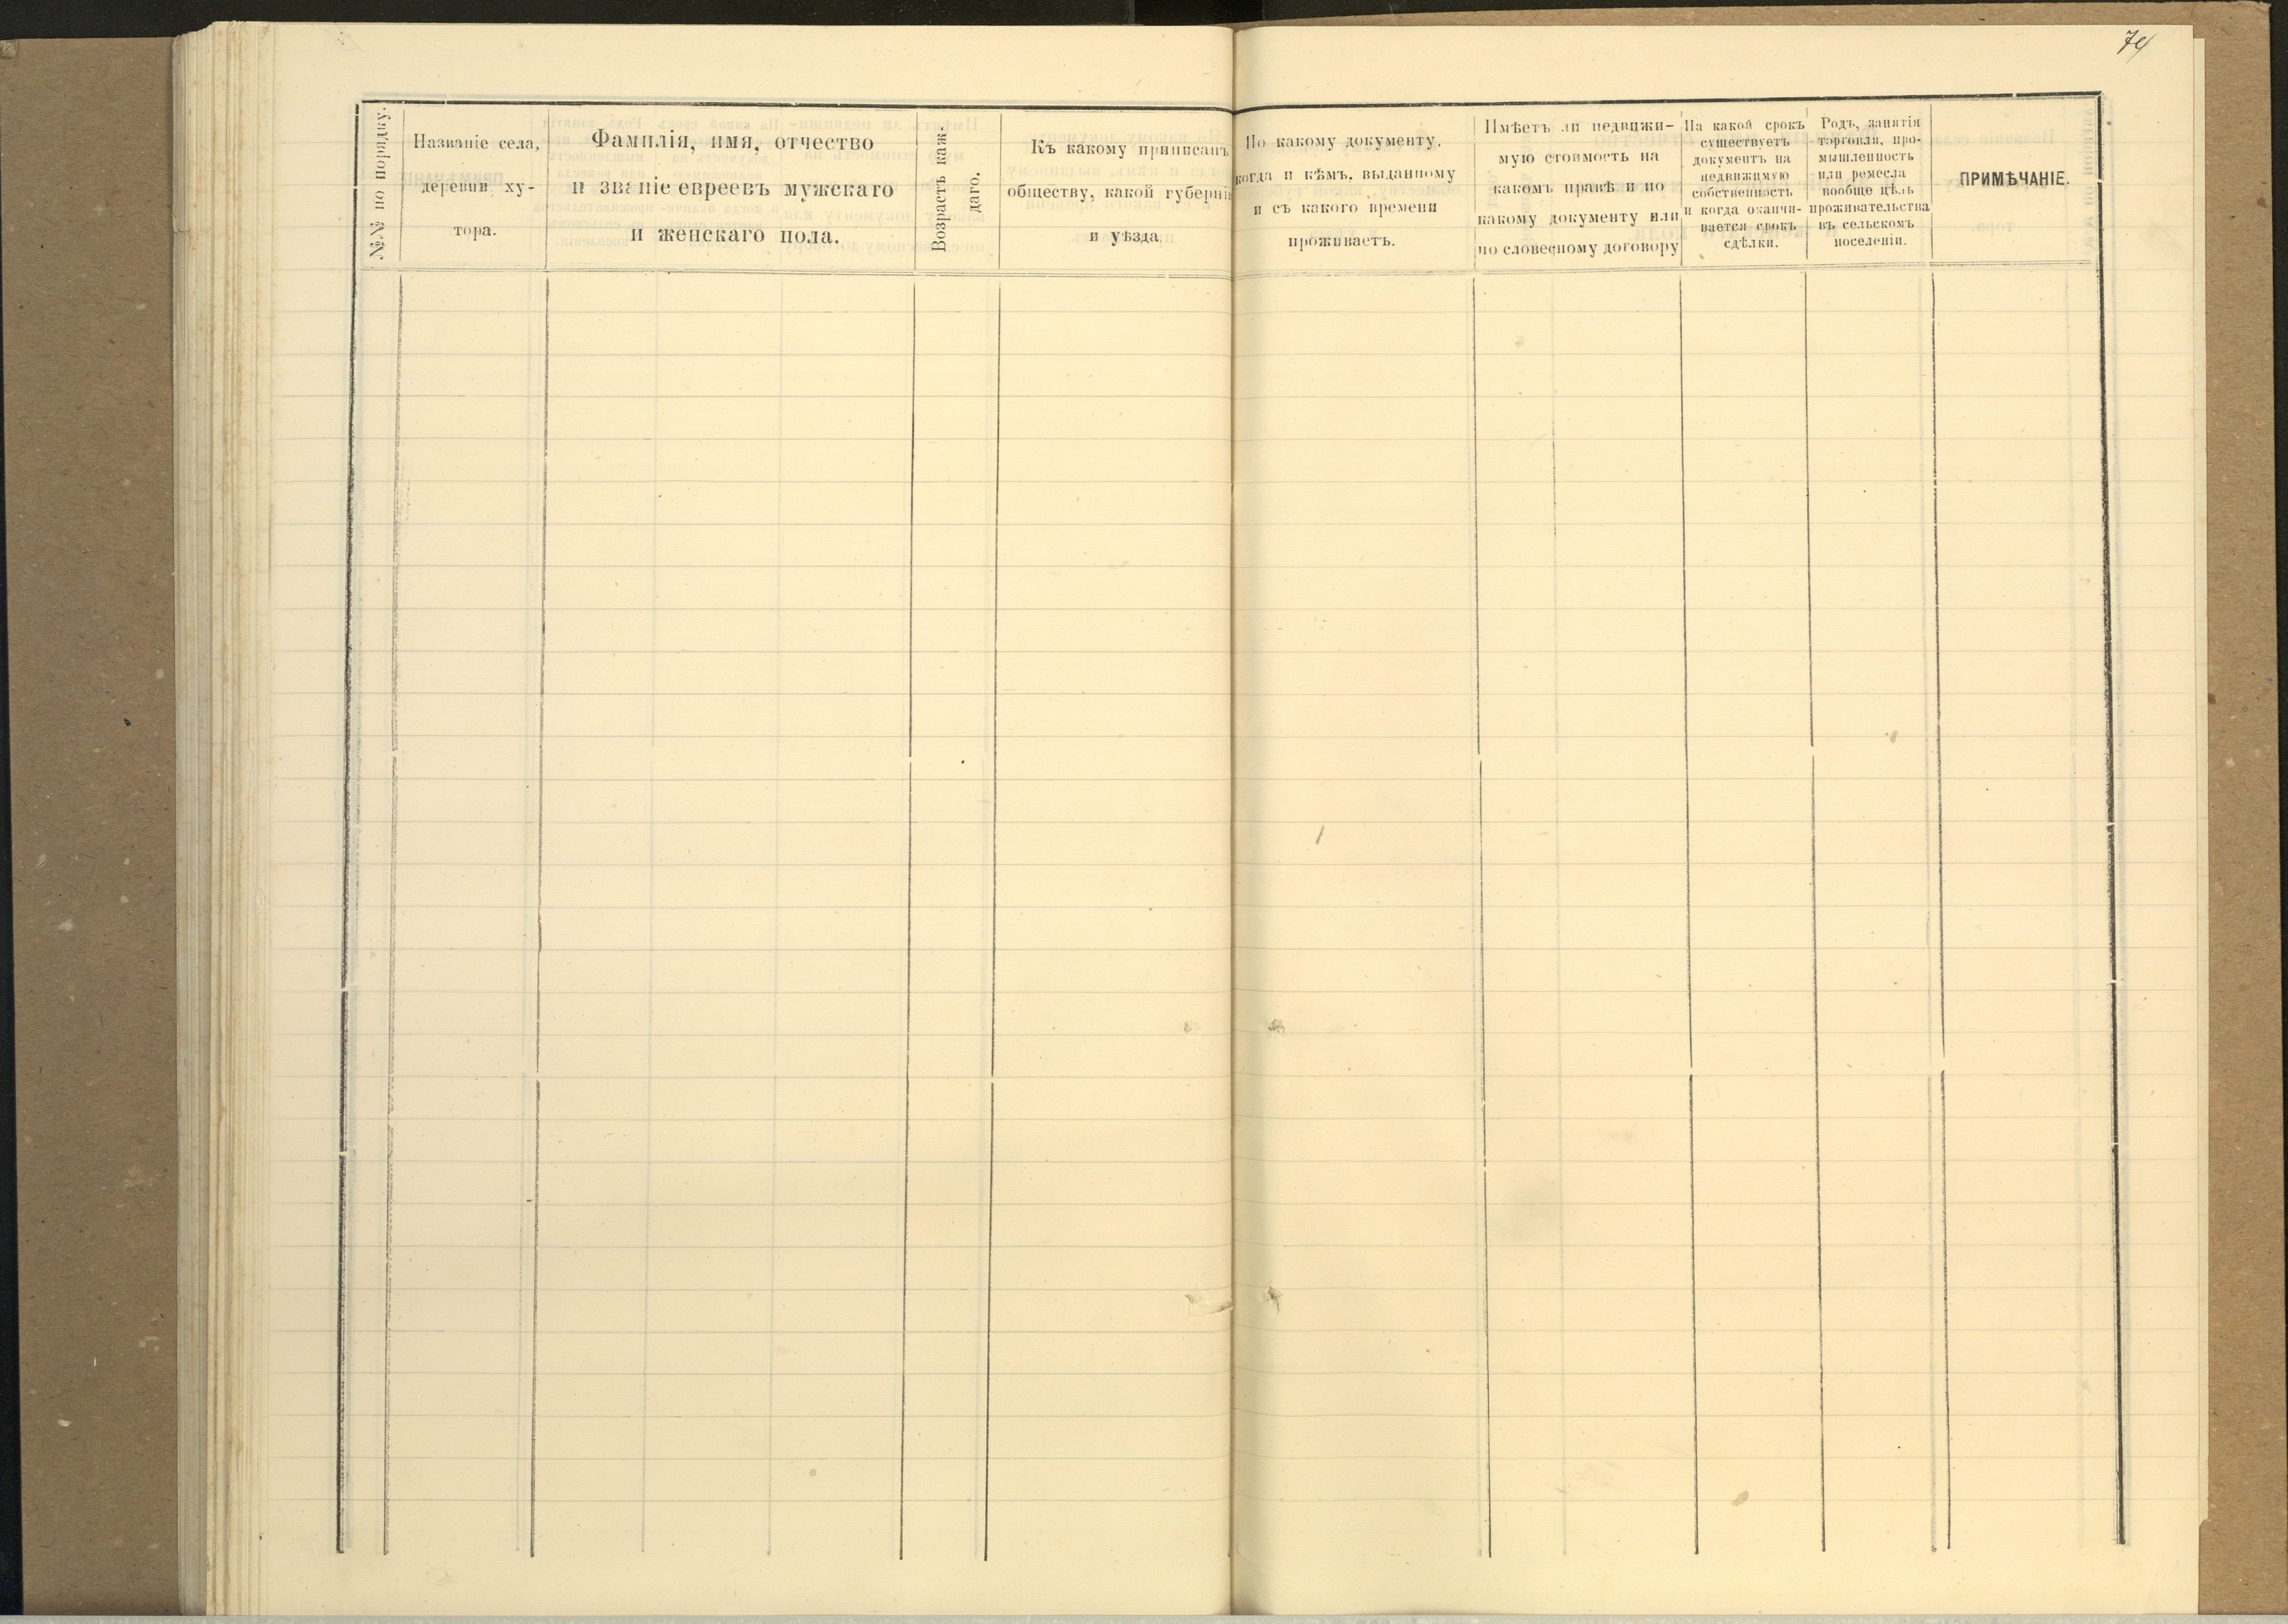 74
№№ по порядку.
Названіе села,
деревни ху-
тора.
Фамилія, имя, отчество
и званіе евреевъ мужскаго
и женскаго пола.
Возрастъ каж-
даго.
Къ какому приписанъ
обществу, какой губерніи
и уѣзда.
По какому документу,
когда и кѣмъ, выданному
и съ какого времени
проживаетъ.
Имѣетъ ли недвижи-
мую стоимость на
какомъ правѣ и по
какому документу или
по словесному договору
На какой срокъ
существуетъ
документъ на
недвижимую
собственность
и когда оканчи-
вается срокъ
сдѣлки.
Родъ, занятія
торговля, про-
мышленность
или ремесла
вообще цѣль
проживательства
въ сельскомъ
поселеніи.
ПРИМѢЧАНІЕ.